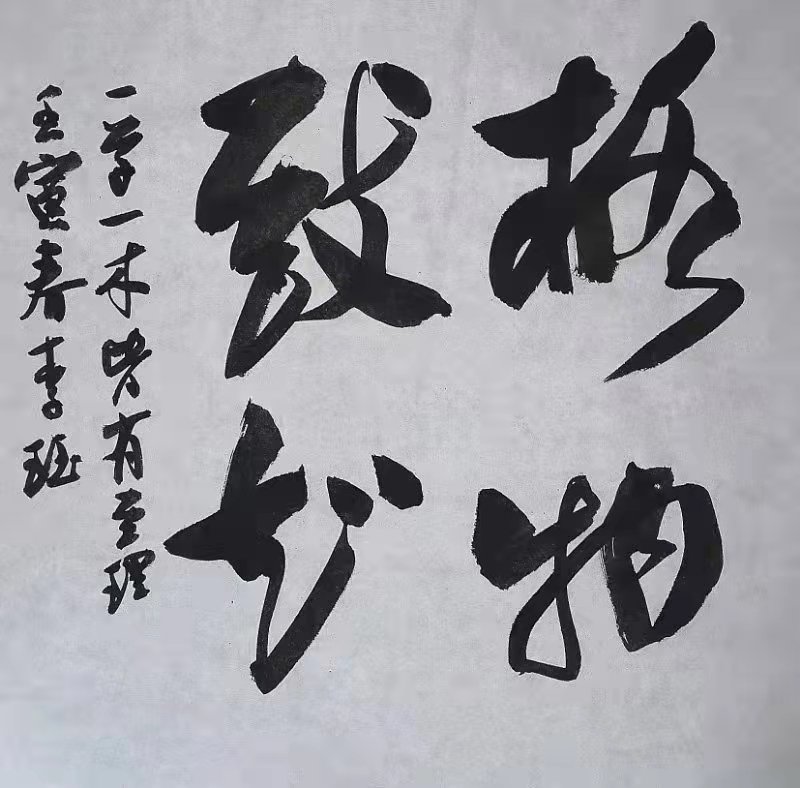 格物
致知
一草一木皆有至理
壬寅春李珏